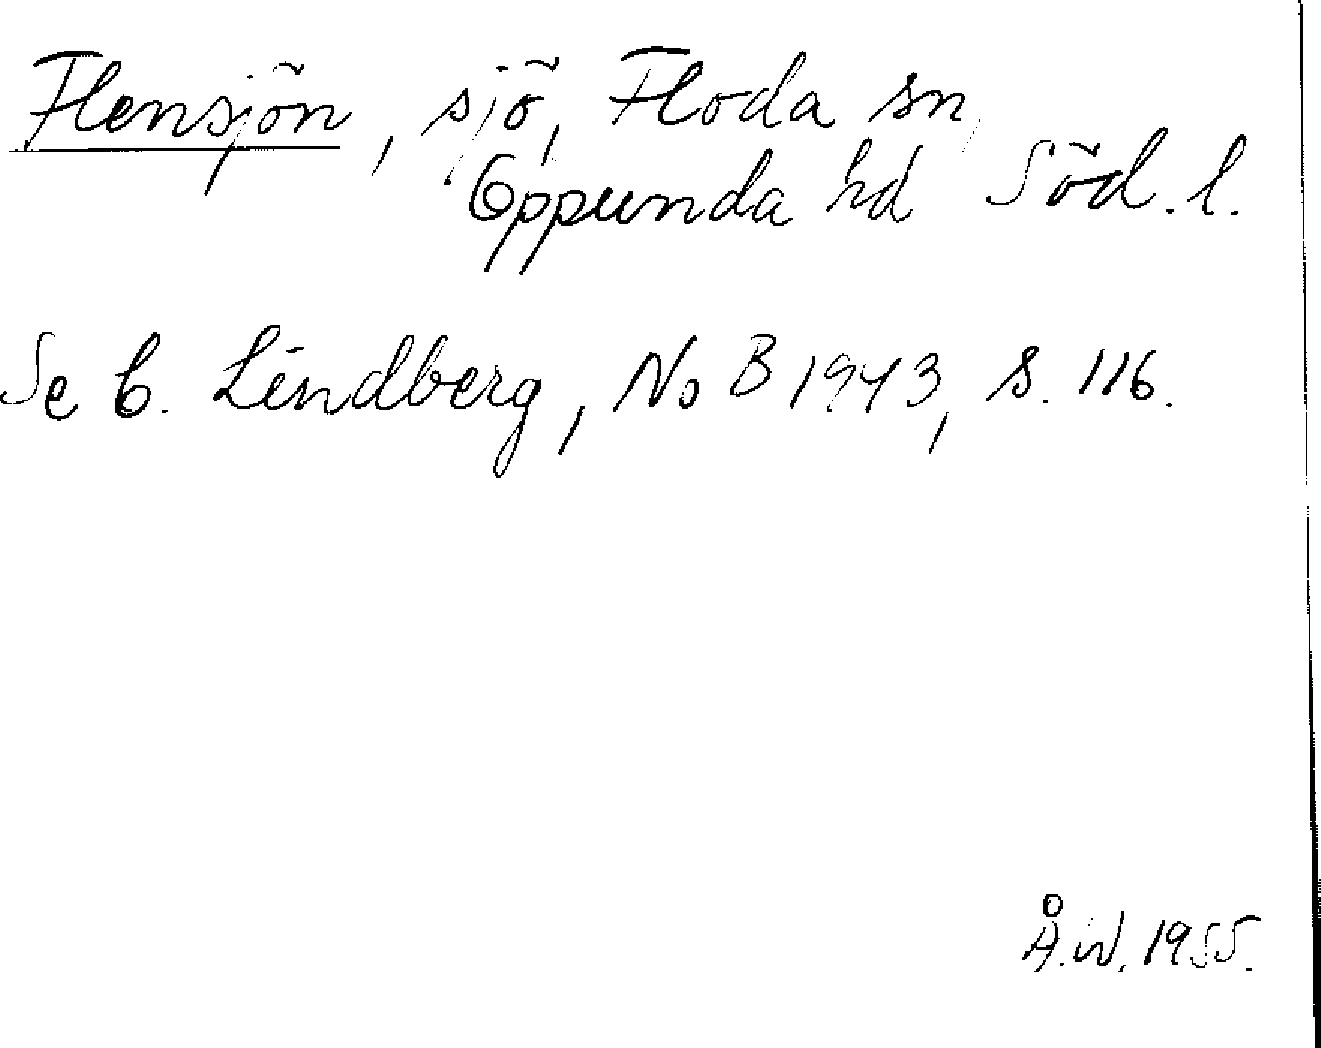 Flensjön, sjö, Floda sn,
Oppunda hd Söd. l.
Se C. Lindberg, NoB 1943, s. 116.
Å.W. 1955.